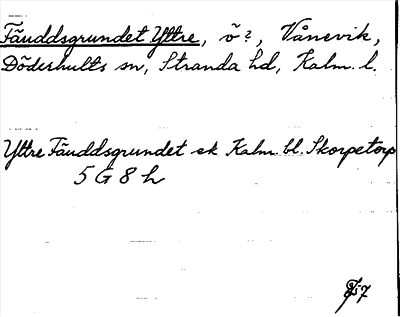 Fäuddsgrundet Yttre, ö?, Vånevik,
Döderhults sn, Stranda hd, Kalm. l.
Yttre Fäuddsgrundet sk Kalm. bl. Skorpetorp
5 G 8 h